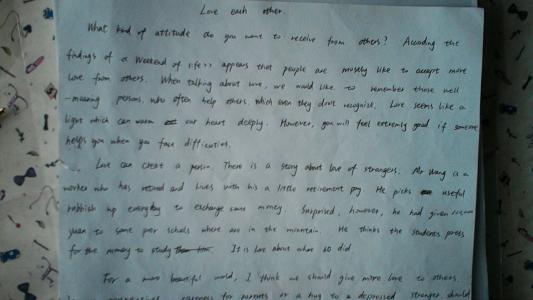 Love each other.
What kind of attitude do you want to receive from others? Accoding the
findings of a Weekend of life>> appears that people are mosely like to accept more
love from others. When talking about love, we would like to remember those well
-meaning persons who often help others, which even they don't recognize. Love seems like a
light which can warm our heart deeply. However, you will feel extremly good if someone
helps you when you face difficuties.
Love can cheat a person. There is a story about love of strangers. Mr Wang is a
worker who has retired and lives with his a little retirement pay. He picks useful
rubbish up everyday to exchange some money. Surprised, however, he had given
yuan to some poor schools where are in the mountain. He thinks the students press
for the money to study. It is love about what so did.
For a more beautiful world, I think we should give more love to others
for parents or a hug to a depressed stranger should